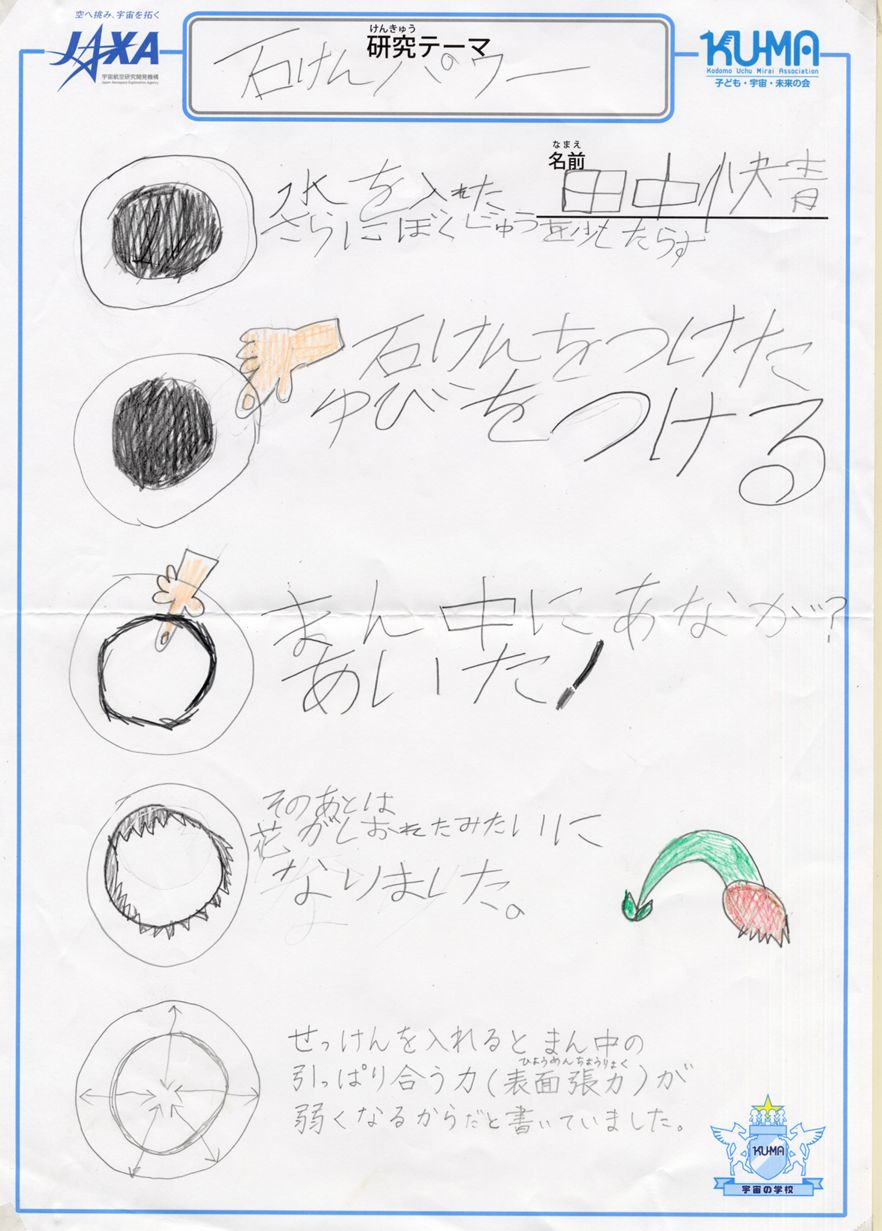 空へ挑み、宇宙を拓く
JAXA
宇宙航空研究開発機構
Japan Aerospace Exploration Agency
けんきゅう
研究テーマ
石けんパワー
KU-MA
Kodomo Uchu Mirai Association
子ども・宇宙・未来の会
なまえ
名前
田中快青
水を入れた
さらにぼくじゅうを少したらす
石けんをつけた
ゆびをつける
まん中にあなが?
あいた!
そのあとは
花がしおれたみたいに
なりました。
せっけんを入れるとまん中の
ひょうめんちょうりょく
引っぱり合う力(表面張力)が
弱くなるからだと書いていました。
KU-MA
宇宙の学校